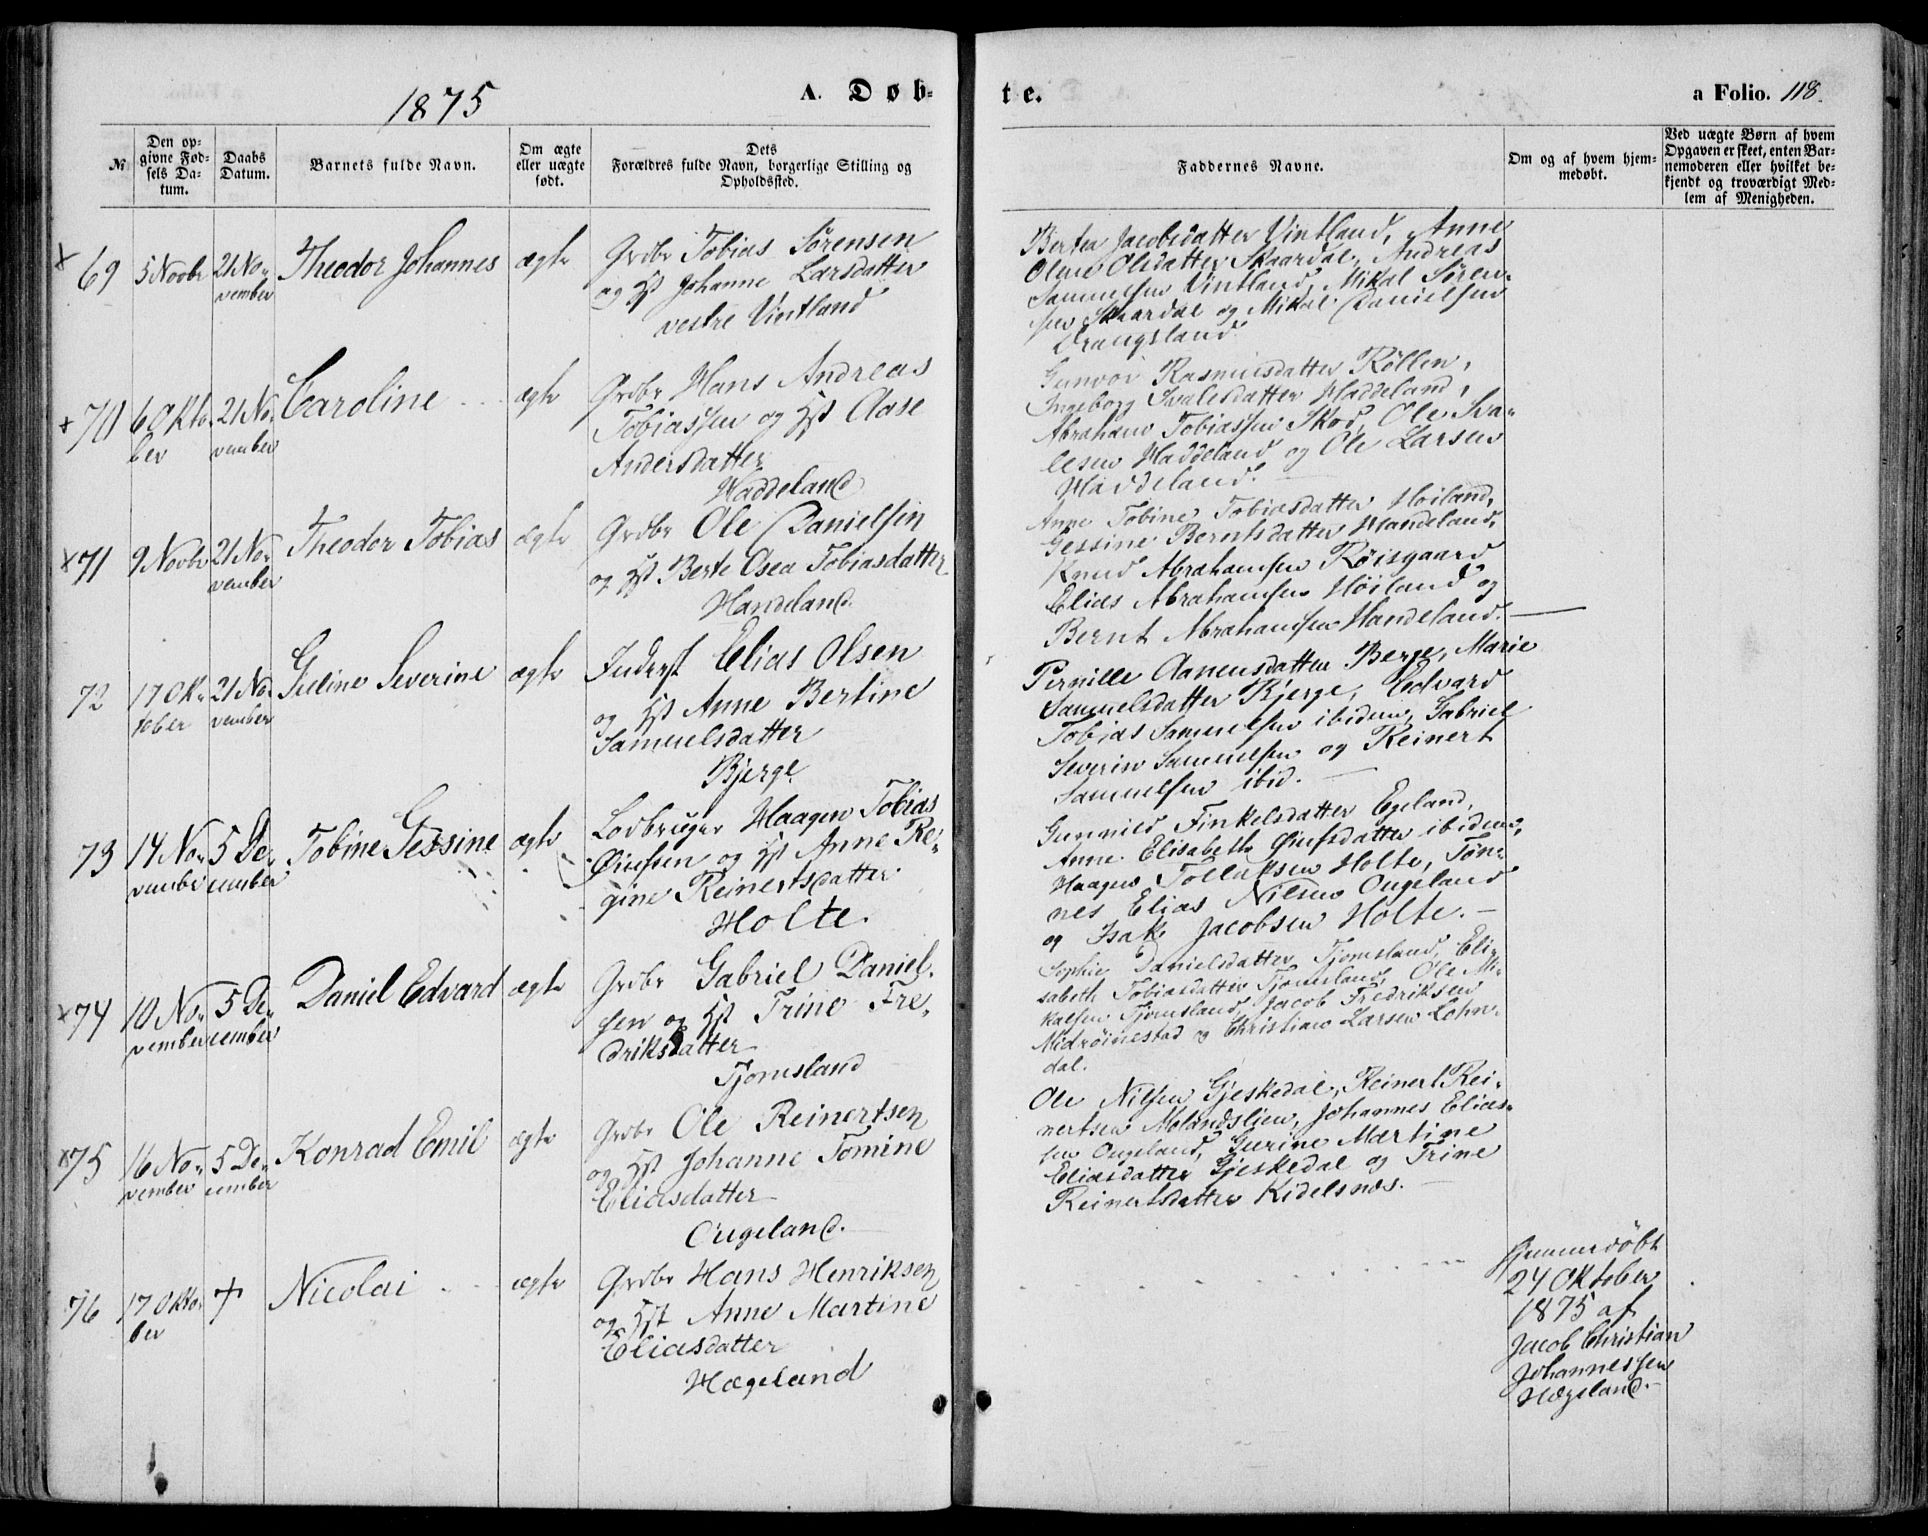 1875
A. Døb-
te.
a Folio. 118.
№
Den op-
givne Fød-
sels Da-
tum.
Daabs
Datum.
Barnets fulde Navn.
Om ægte
eller uægte
født.
Dets
Forældres fulde Navn, borgerlige Stilling og
Opholdssted.
Faddernes Navne.
Om og af hvem hjem-
medøbt.
Ved uægte Børn af hvem
Opgaven er skeet, enten Bar-
nemoderen eller hvilket be-
kjendt og troværdigt Med-
lem af Menigheden.
x 69
5 Novbr
21 No-
vember
Theodor Johannes
ægte
Grdbr Tobias Sørensen
og Hst Johanne Larsdatter
vestre Vintland
Berte Jacobsdatter Vintland, Anne
Olene Olsdatter Skaardal, Andreas
Samuelsen Vintland, Mikal Søren-
sen Skaardal og Mikal Danielsen
Drangsland
x 70
6 Okto-
ber
21 No-
vember
Caroline
ægte
Grdbr Hans Andreas
Tobiassen og Hst Aase
Andersdatter
Haddeland
Gunvor Rasmusdatter Røllen,
Ingeborg Svalesdatter Haddeland,
Abraham Tobiassen Skod, Ole Sva-
lesen Haddeland og Ole Larsen
Haddeland.
x 71
9 Novbr
21 No-
vember
Theodor Tobias
ægte
Grdbr Ole Danielsen
og Hst Berte Osea Tobiasdatter
Handeland
Anne Tobine Tobiasdatter Høiland,
Gessine Berntsdatter Handeland,
Knud Abrahamsen Røisgaard
Elias Abrahamsen Høiland og
Bernt Abrahamsen Handeland.
72
17 Ok-
tober
21 No-
vember
Guline Severine
ægte
Inderst Elias Olsen
og Hst Anne Bertine
Samuelsdatter
Bjerge
Pernille Aanensdatter Berge, Marie
Samuelsdatter Bjerge, Edvard
Tobias Samuelsen ibidem, Gabriel
Severin Samuelsen og Reinert
Samuelsen ibid.
73
14 No-
vember
5 De-
cember
Tobine Gessine
ægte
Lodbruger Haagen Tobias
og Hst Anne Re-
gine Reinertsdatter
Holte.
Gunnild Finkelsdatter Egeland,
Anne Elisabeth ibidem,
Haagen Tollaksen Holte, Tøn-
nes Elias Nilsen Ougeland
og Isak Jacobsen Holte.
x 74
10 No-
vember
5 De-
cember
Daniel Edvard
ægte
Grdbr Gabriel Daniel-
sen og Hst Trine Fre-
driksdatter
Tjomsland
Sophie Danielsdatter Tjomsland, Eli-
sabeth Tobiasdatter Tjomsland, Ole Mi-
kalsen Tjomsland, Jacob Fredriksen
Midrøinestad og Christian Larsen Lohn-
dal.
x 75
16 No-
vember
5 De-
cember
Konrad Emil
ægte
Grdbr Ole Reinertsen
og Hst Johanne Tomine
Eliasdatter
Ougeland.
Ole Nilsen Gjeskedal, Reinert Rei-
nertsen Molandslien, Johannes Elias-
sen Ougeland, Gurine Martine
Eliasdatter Gjeskedal og Trine
Reinertsdatter Kidelsnæs.
76
17 Okto-
ber
+
Nicolai
ægte
Grdbr Hans Henriksen
og Hst Anne Martine
Eliasdatter
Hægeland
hjemmedøbt
24 Oktober
1875 af
Jacob Christian
Johannessen
Hægeland.